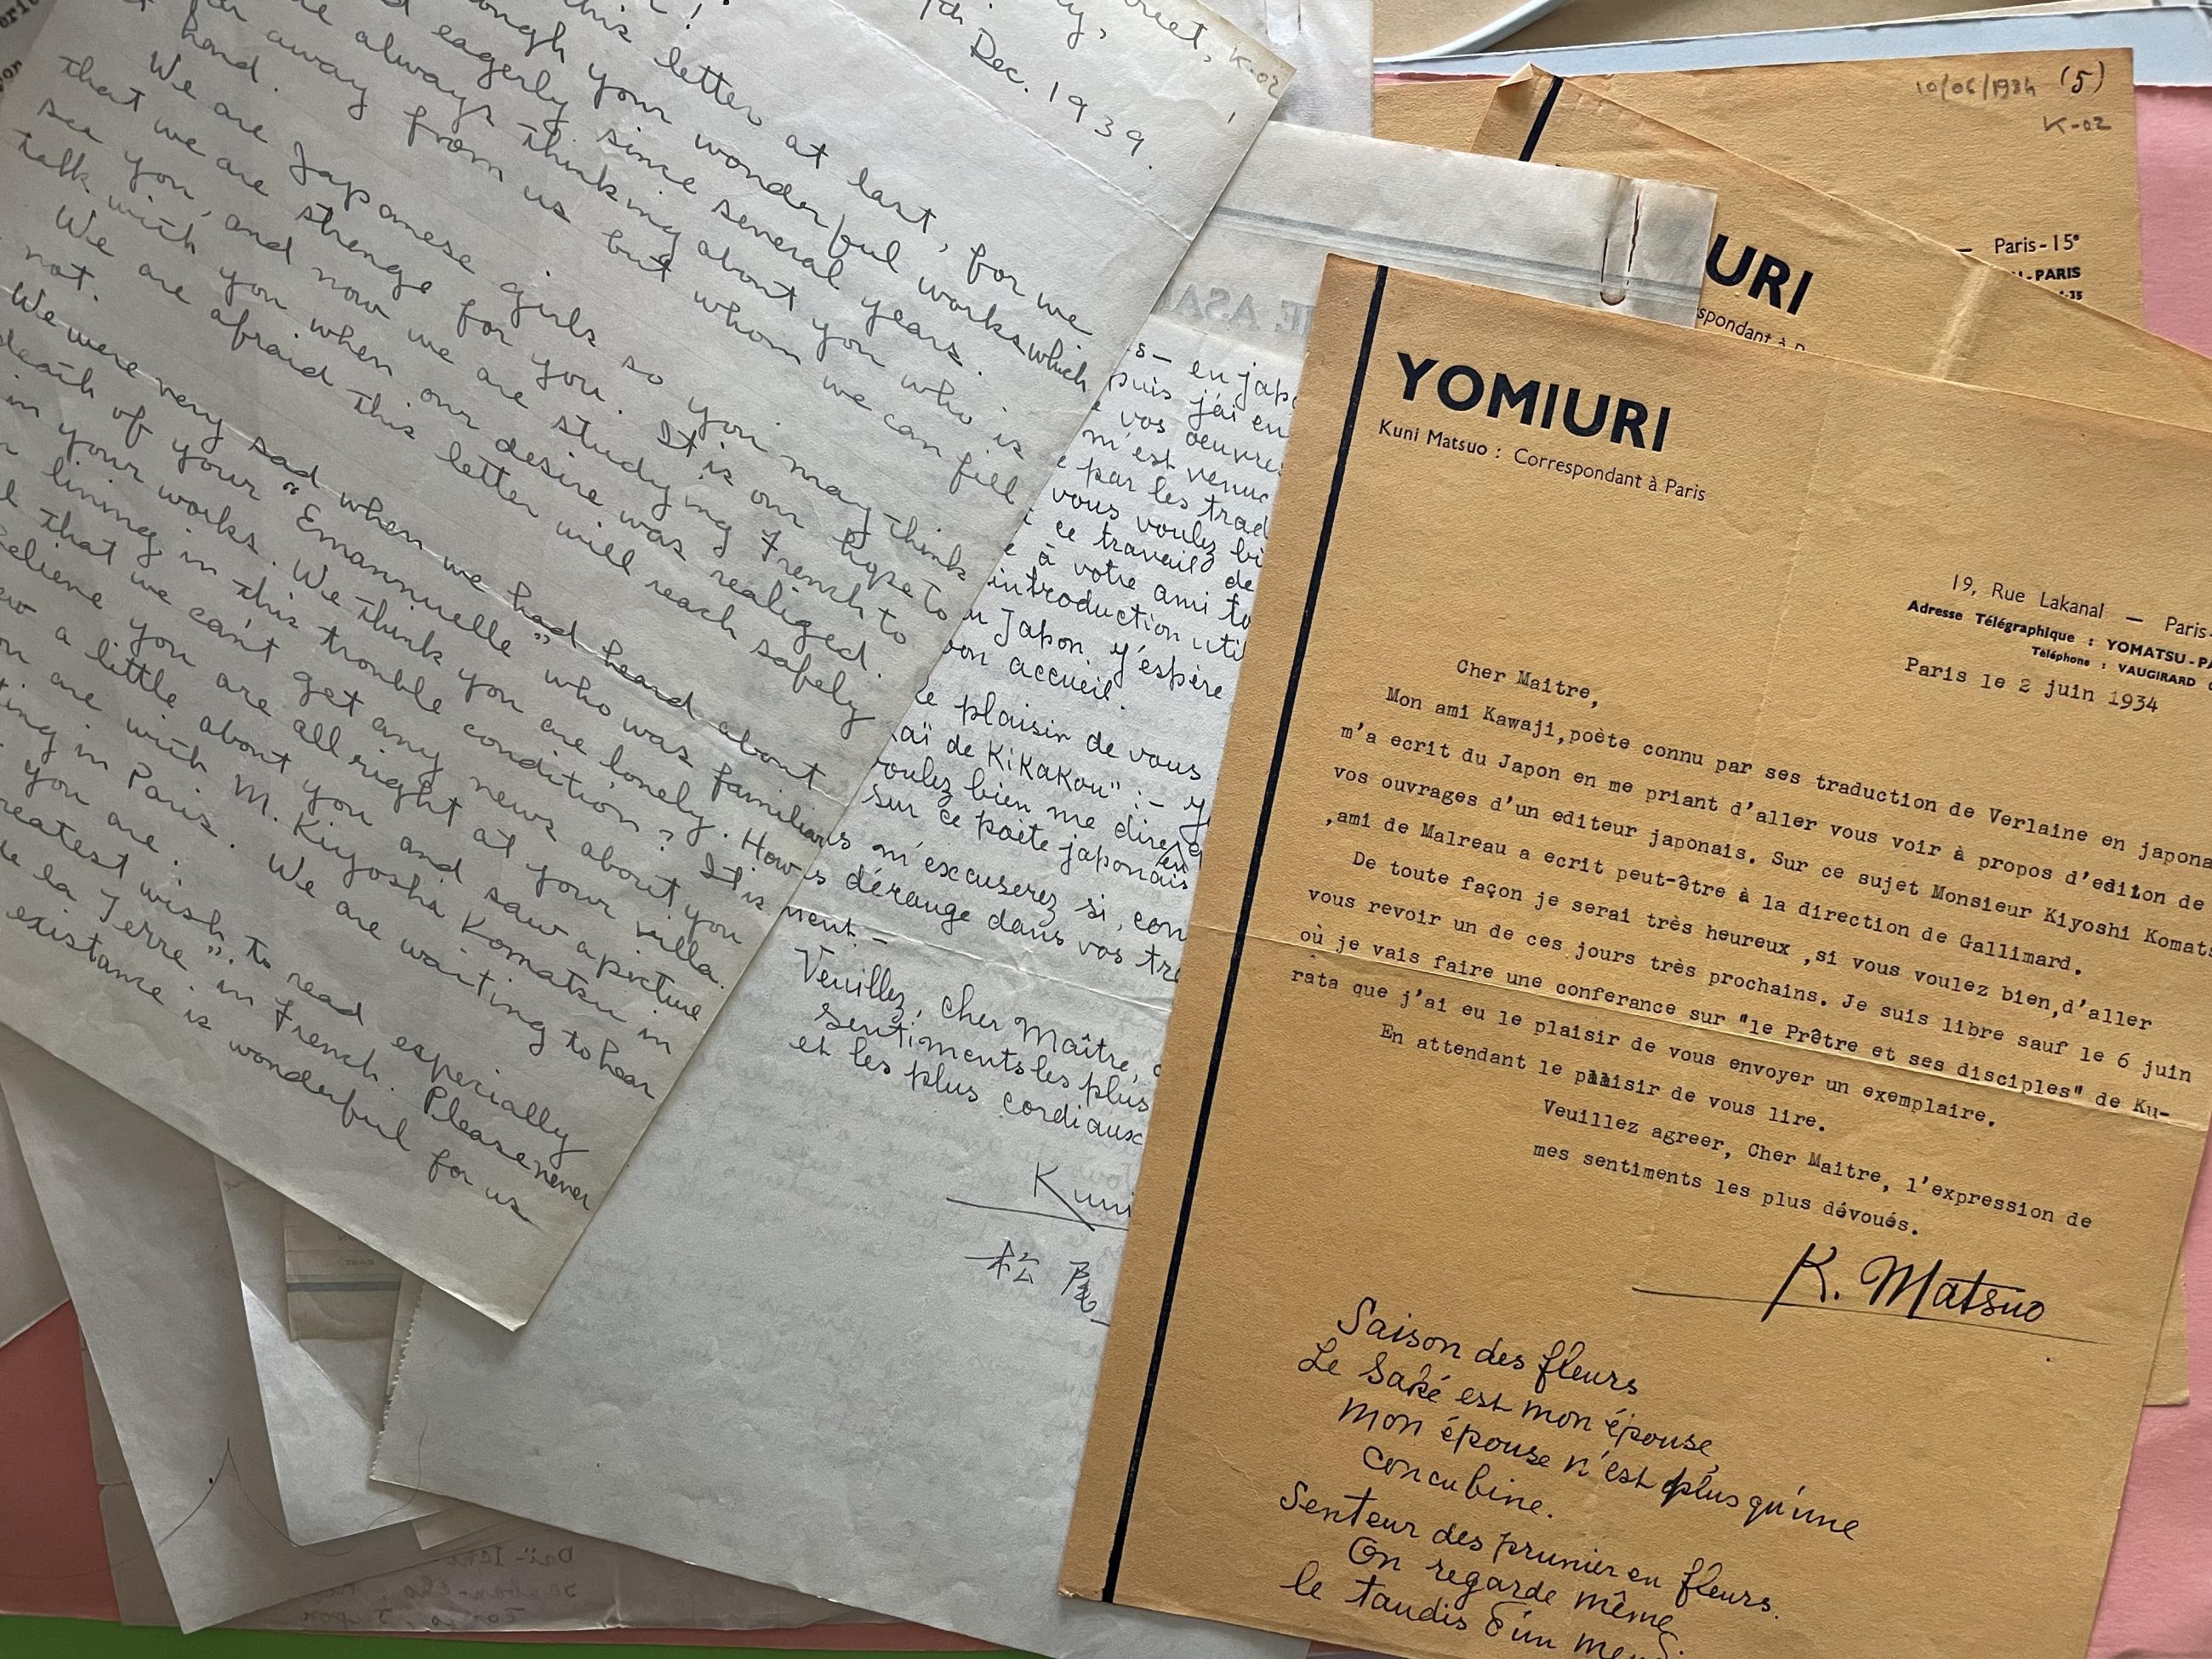 reet, K-02
Dec. 1939.
this letter at last, for we
eagerly your wonderful works which
since several years.
always thinking about you who is
far away from us but whom we can feel
hand.
We are Japanese girls so you may think
that we are strenge for you. It is our hope to
see you, and now we are studying French to
talk with you when our desire was realized.
We are afraid this letter will reach safely
not.
We were very sad when we had heard about
death of your "Emannuelle" who was familiar
in your works. We think you are lonely. How
lining in this trouble condition? It is
that we can't get any news about you
you are all right at your villa.
a little about you and saw a picture
are with M. Kiyoshi Komatsu in
in Paris. We are waiting to hear
you are.
greatest wish to read especially
de la Terre" in French. Please never
existance is wonderful for us
en japo
puis j'ai en
vos oeuvres
m'est venue
par les trad
vous voulez bi
ce travail de
à votre ami to
introduction util
Japon j'espère
bon accueil.
le plaisir de vous
Kaï de Kikakou" :-
voulez bien me dire
sur ce poète japonais
en
m'excuserez si, con
dérange dans vos tra
ment -
Veuillez, cher Maître,
sentiments les plus
et les plus cordiaux
Kuni
10/06/1934 (5)
K-02
— Paris-15e
-PARIS
URI
spondant à P
YOMIURI
Kuni Matsuo : Correspondant à Paris
19, Rue Lakanal — Paris-
Adresse Télégraphique : YOMATSU-PA
Téléphone : VAUGIRARD
Paris le 2 juin 1934
Cher Maitre,
Mon ami Kawaji,poète connu par ses traduction de Verlaine en japona
m'a ecrit du Japon en me priant d'aller vous voir à propos d'editon de
vos ouvrages d'un editeur japonais. Sur ce sujet Monsieur Kiyoshi Komats
,ami de Malreau a ecrit peut-être à la direction de Gallimard.
De toute façon je serai très heureux ,si vous voulez bien,d'aller
vous revoir un de ces jours très prochains. Je suis libre sauf le 6 juin
où je vais faire une conferance sur "le Prêtre et ses disciples" de Ku-
rata que j'ai eu le plaisir de vous envoyer un exemplaire.
En attendant le plaisir de vous lire.
Veuillez agreer, Cher Maitre, l'expression de
mes sentiments les plus dévoués.
K. Matsuo
Saison des fleurs
Le Saké est mon épouse,
mon épouse n'est plus qu'une
concubine.
Senteur des prunier en fleurs.
On regarde même
le taudis d'un